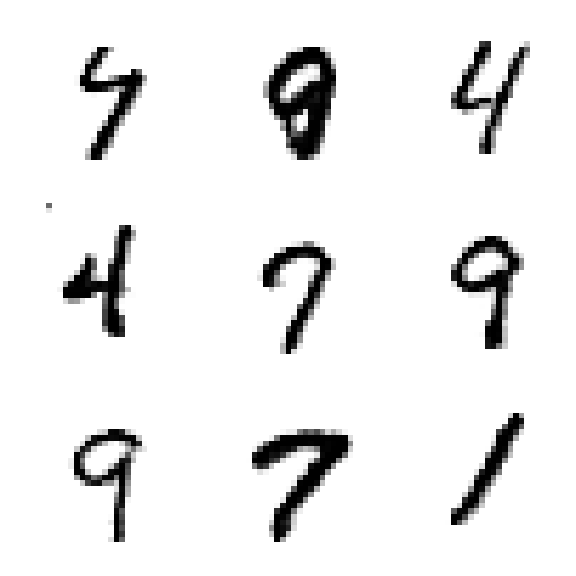 4 8 4
4 7 9
9 7 1